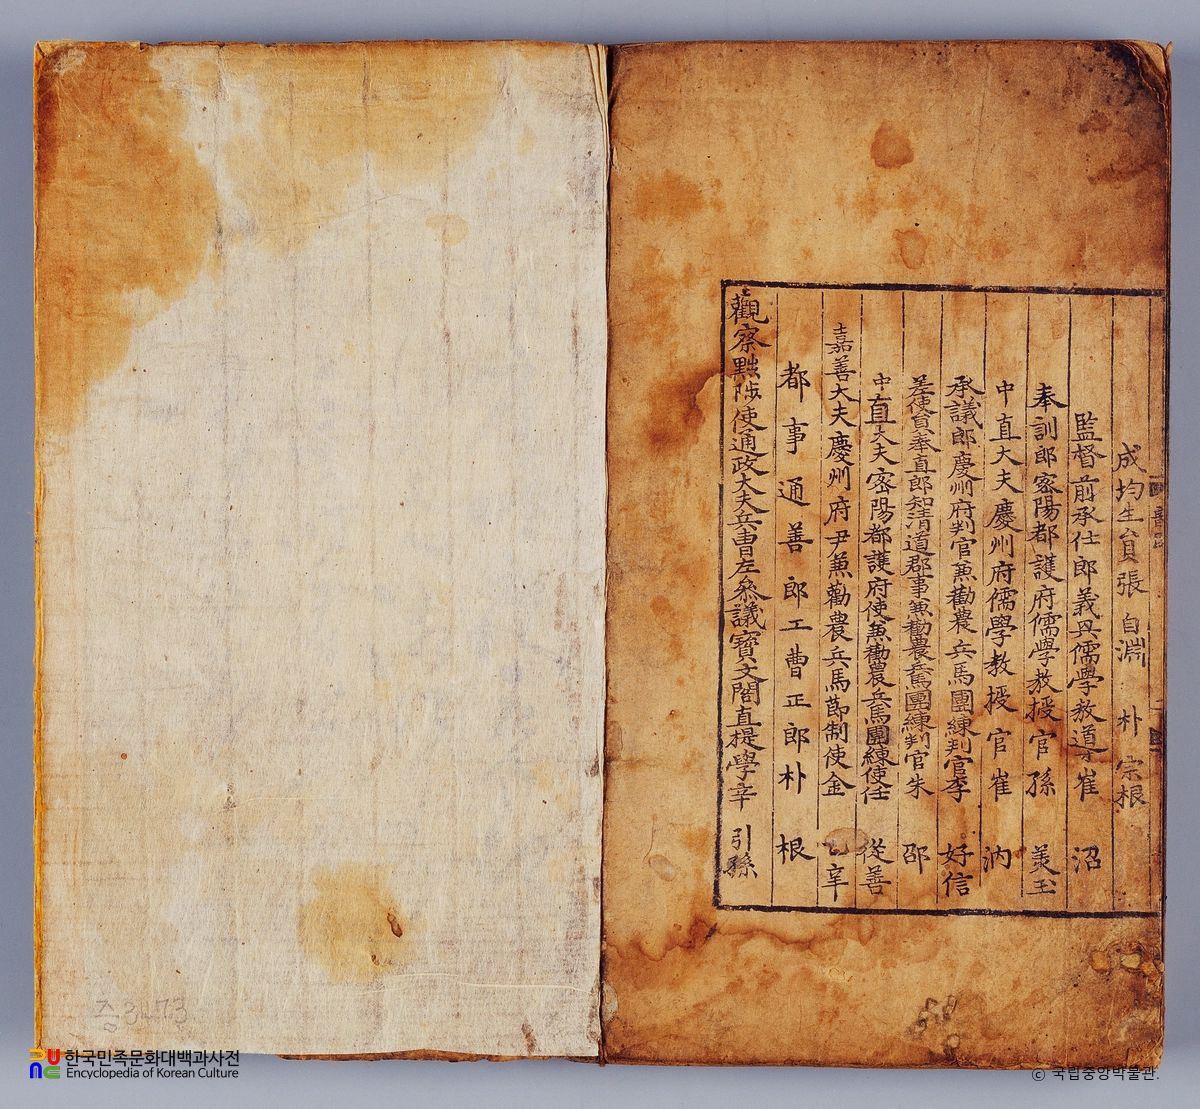 成均生員張自淵 朴宗根
監督前承仕郎義興儒學教導崔 沼
奉訓郎密陽都護府儒學教授官孫 美玉
中直大夫慶州府儒學教授官崔 汭
承議郎慶州府判官兼勸農兵馬團練判官李 好信
差使員奉直郎知淸道郡事兼勸農兵馬團練判官朱 邵
中直大夫密陽都護府使兼勸農兵馬團練使任 從善
嘉善大夫慶州府尹兼勸農兵馬節制使金 乙辛
都事通善郎工曹正郎朴 根
觀察黜陟使通政大夫兵曹左參議寶文閣直提學辛 引孫
증3473
한국민족문화대백과사전
Encyclopedia of Korean Culture
ⓒ 국립중앙박물관.